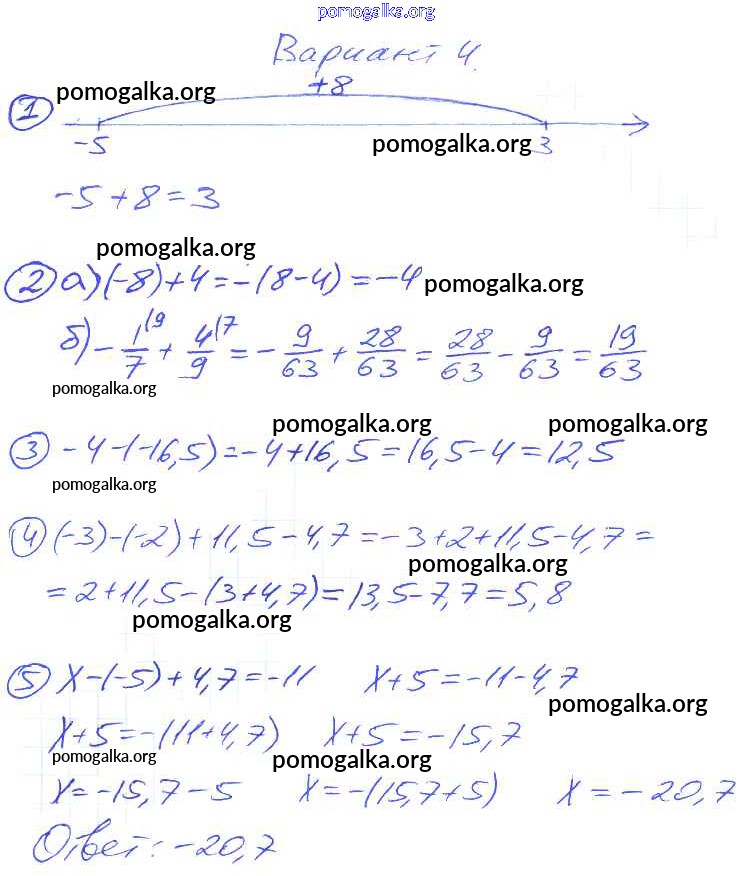 pomogalka.org
Вариант 4.
pomogalka.org +8
1 -5 pomogalka.org 3
-5+8=3
pomogalka.org
2 а) (-8)+4=-(8-4)=-4 pomogalka.org
б) -1/7 (9 + 4/9 (7 = -9/63 + 28/63 = 28/63 - 9/63 = 19/63
pomogalka.org
pomogalka.org pomogalka.org
3 -4-(-16,5)=-4+16,5=16,5-4=12,5
pomogalka.org
4 (-3)-(-2)+11,5-4,7=-3+2+11,5-4,7=
pomogalka.org
=2+11,5-(3+4,7)=13,5-7,7=5,8
pomogalka.org
5 x-(-5)+4,7=-11 x+5=-11-4,7
pomogalka.org
x+5=-(11+4,7) x+5=-15,7
pomogalka.org pomogalka.org
x=-15,7-5 x=-(15,7+5) x=-20,7
Ответ: -20,7